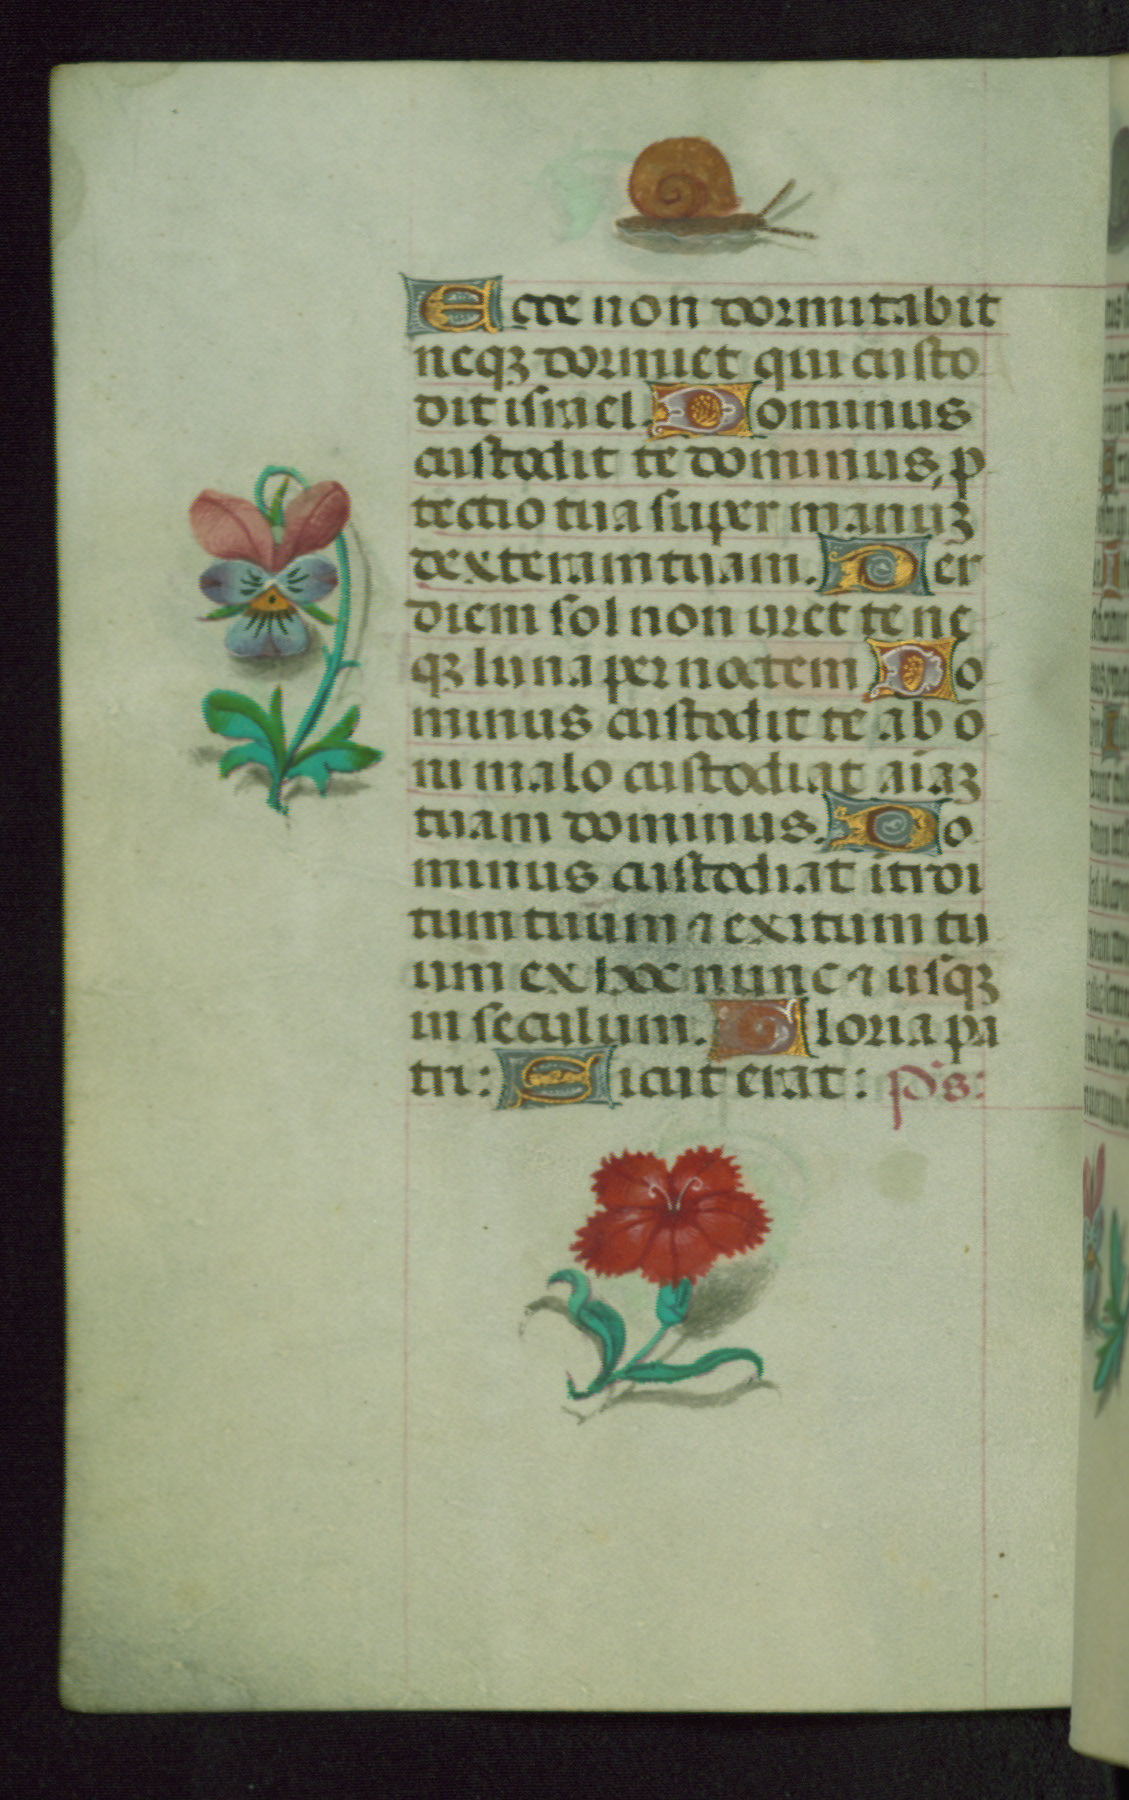 Ecce non dormitabit
neqꝫ dormiet qui custo
dit israel. Dominus
custodit te dominus, ꝓ
tectio tua super manuꝫ
dexteram tuam. Per
diem sol non uret te ne
qꝫ luna per noctem Do
minus custodit te ab õ
ni malo custodiat aiaꝫ
tuam dominus. Do
minus custodiat itroi
tum tuum ⁊ exitum tu
um ex hoc nunc ⁊ usqꝫ
in seculum. Gloria pa
tri: Sicut erat: ps: